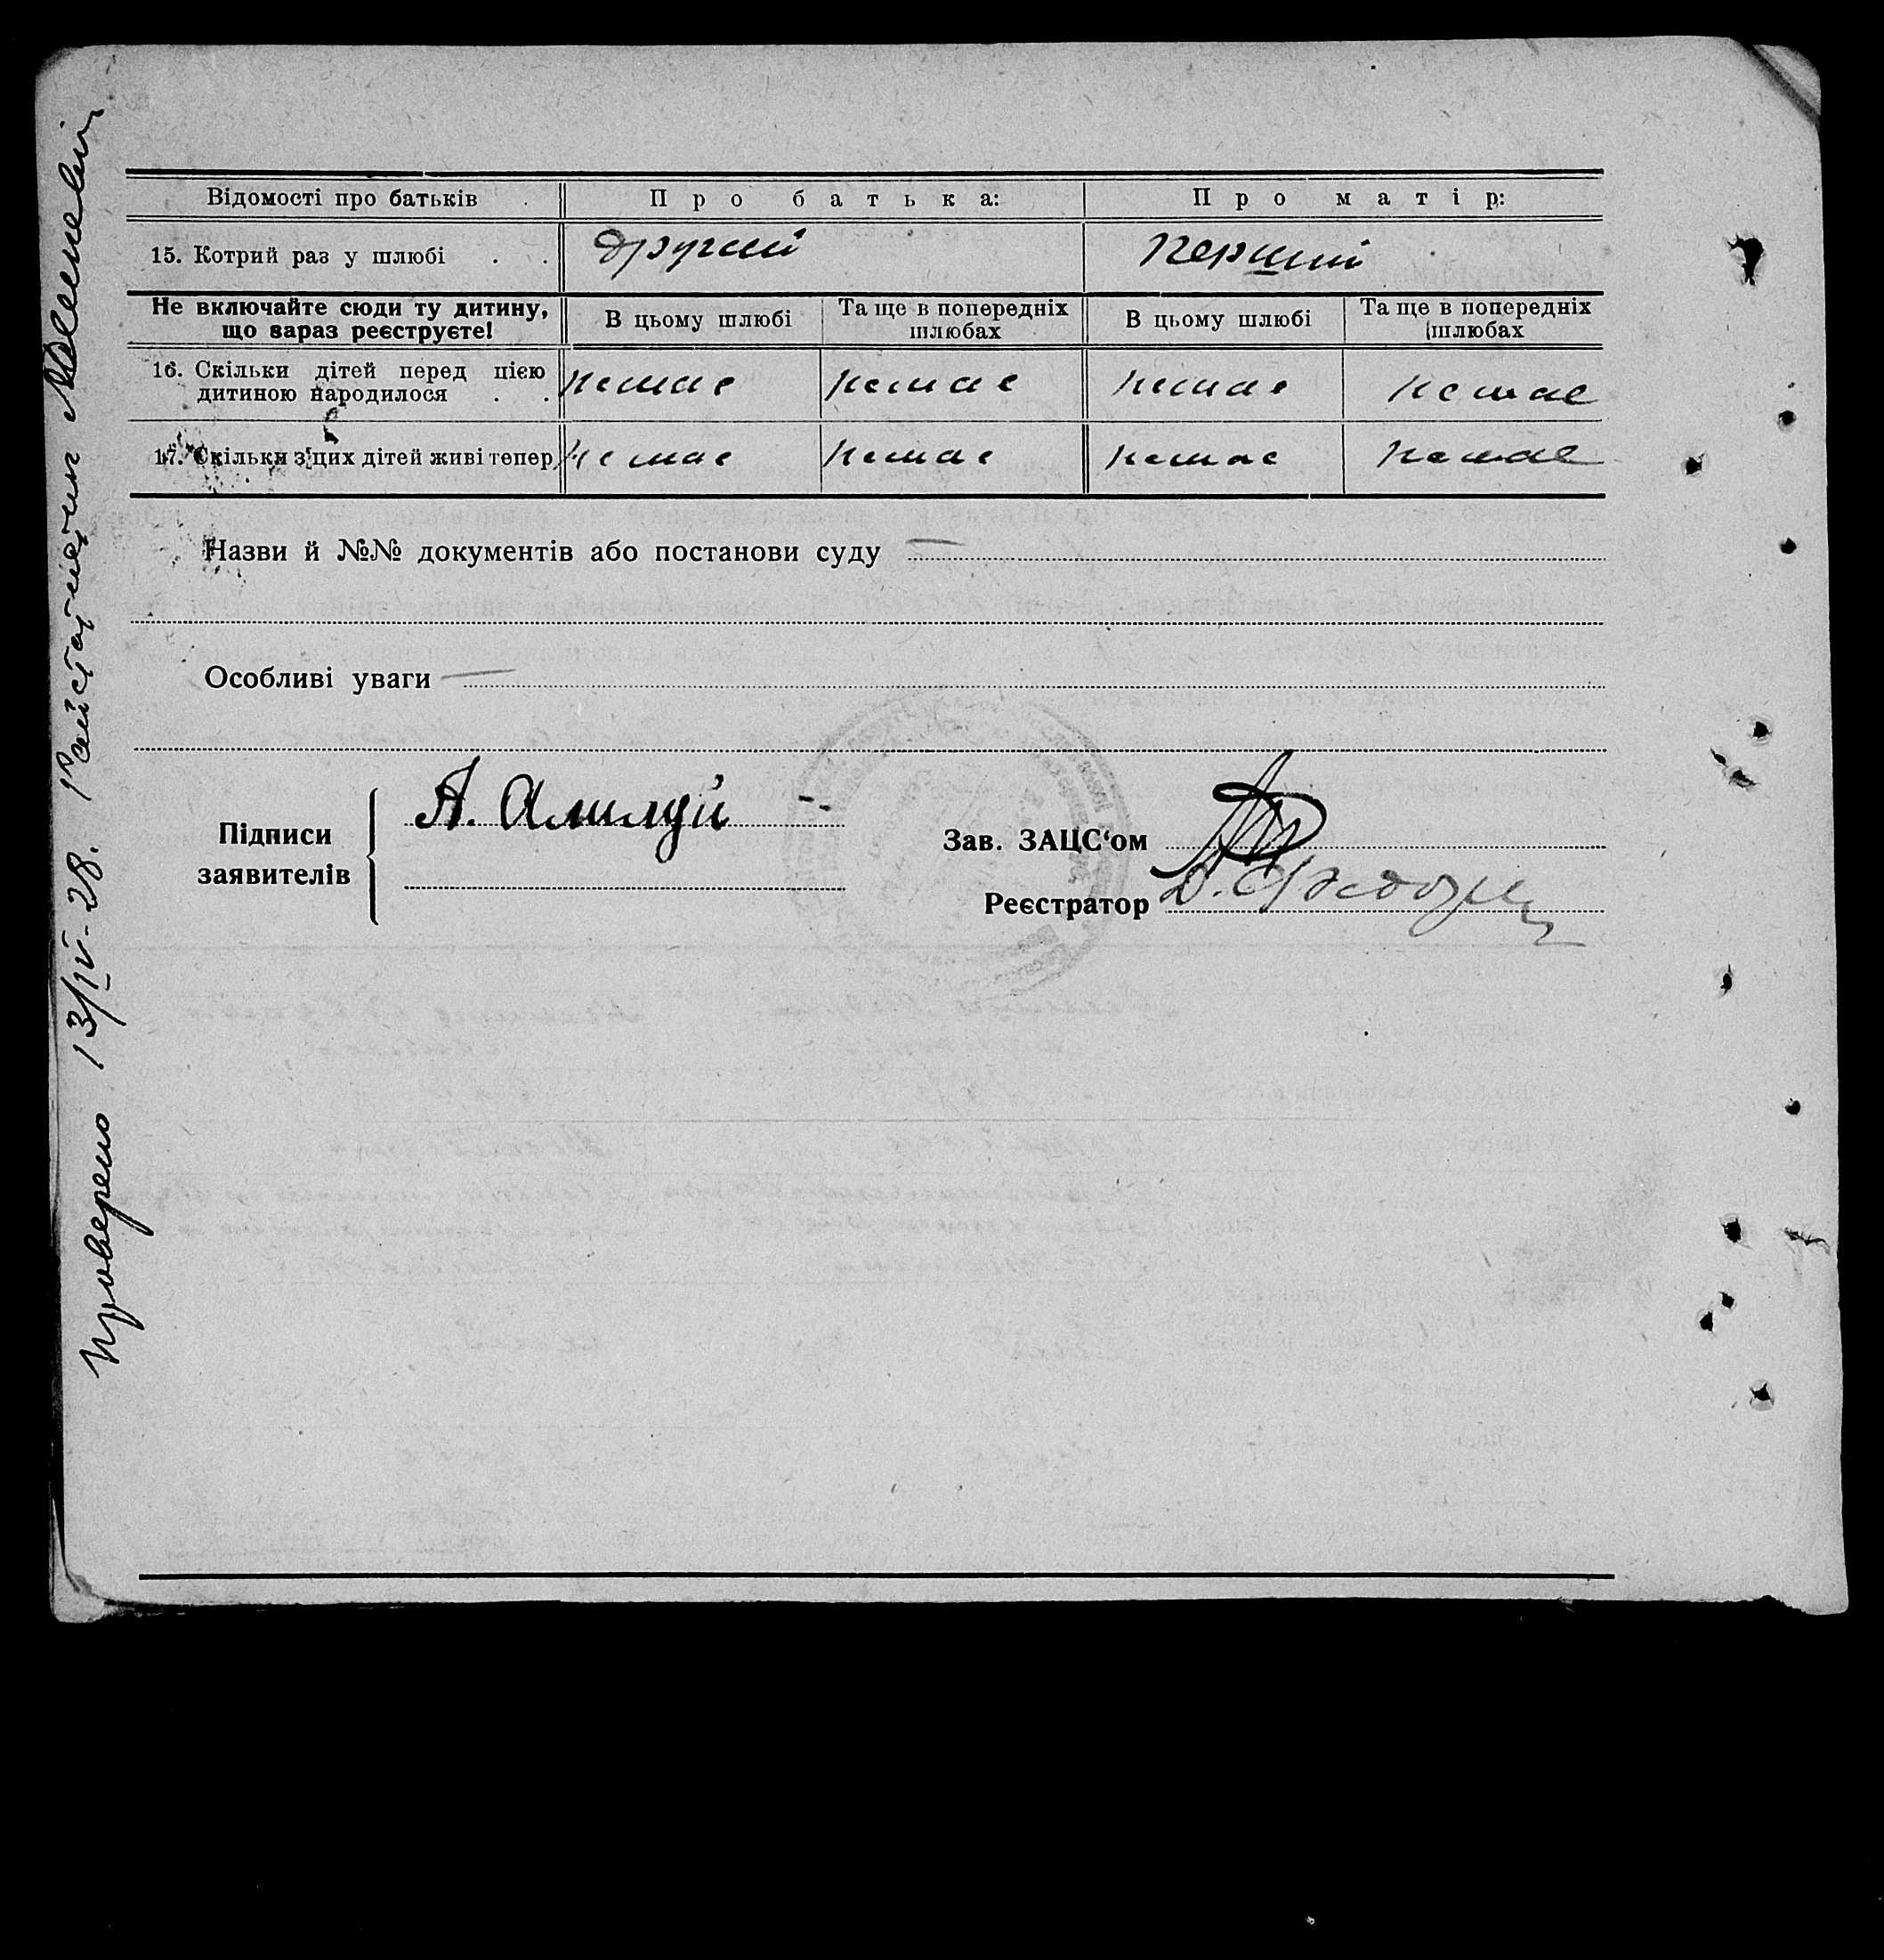 Відомості про батьків Про батька: Про матір:
15. Котрий раз у шлюбі . . другий перший
Не включайте сюди ту дитину, що зараз реєструєте! В цьому шлюбі Та ще в попередніх шлюбах В цьому шлюбі Та ще в попередніх шлюбах
16. Скільки дітей перед цією дитиною народилося . . немає немає немає немає
17. Скільки з цих дітей живі тепер немає немає немає немає
Назви й №№ документів або постанови суду —
Особливі уваги —
Підписи заявителів
А.
Зав. ЗАЦС‘ом
Реєстратор Д.
проверено 13/IV-28.